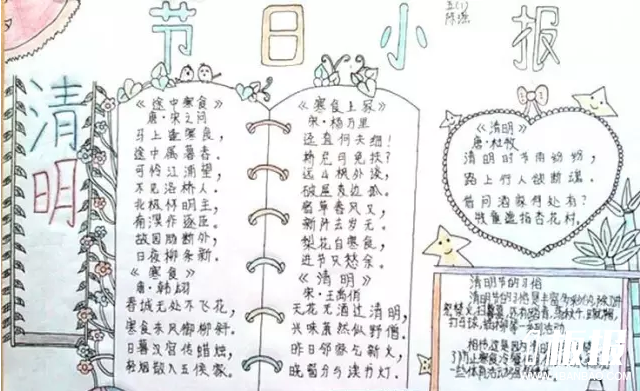 节日小报
五(1)
清明
《途中寒食》
唐·宋之问
马上逢寒食,
途中属暮春。
可怜江浦望,
不见洛桥人。
北极怀明主,
有溟作逐臣。
故园肠断处,
日夜柳条新。
《寒食》
唐·韩翃
春城无处不飞花,
寒食东风御柳斜。
日暮汉宫传蜡烛,
轻烟散入五侯家。
《寒食上冢》
宋·杨万里
迳直何夫细!
桥危可免扶?
远山枫外淡,
破屋麦边孤。
宿草春风又,
新阡去岁无。
梨花自寒食,
进节只愁余。
《清明》
宋·王禹偁
无花无酒过清明,
兴味萧然似野僧。
昨日邻家乞新火,
晓窗分与读书灯。
《清明》
唐·杜牧
清明时节雨纷纷,
路上行人欲断魂。
借问酒家何处有?
牧童遥指杏花村。
清明节的习俗
清明节的习俗是丰富
打马球、插柳等一系列
相传这是